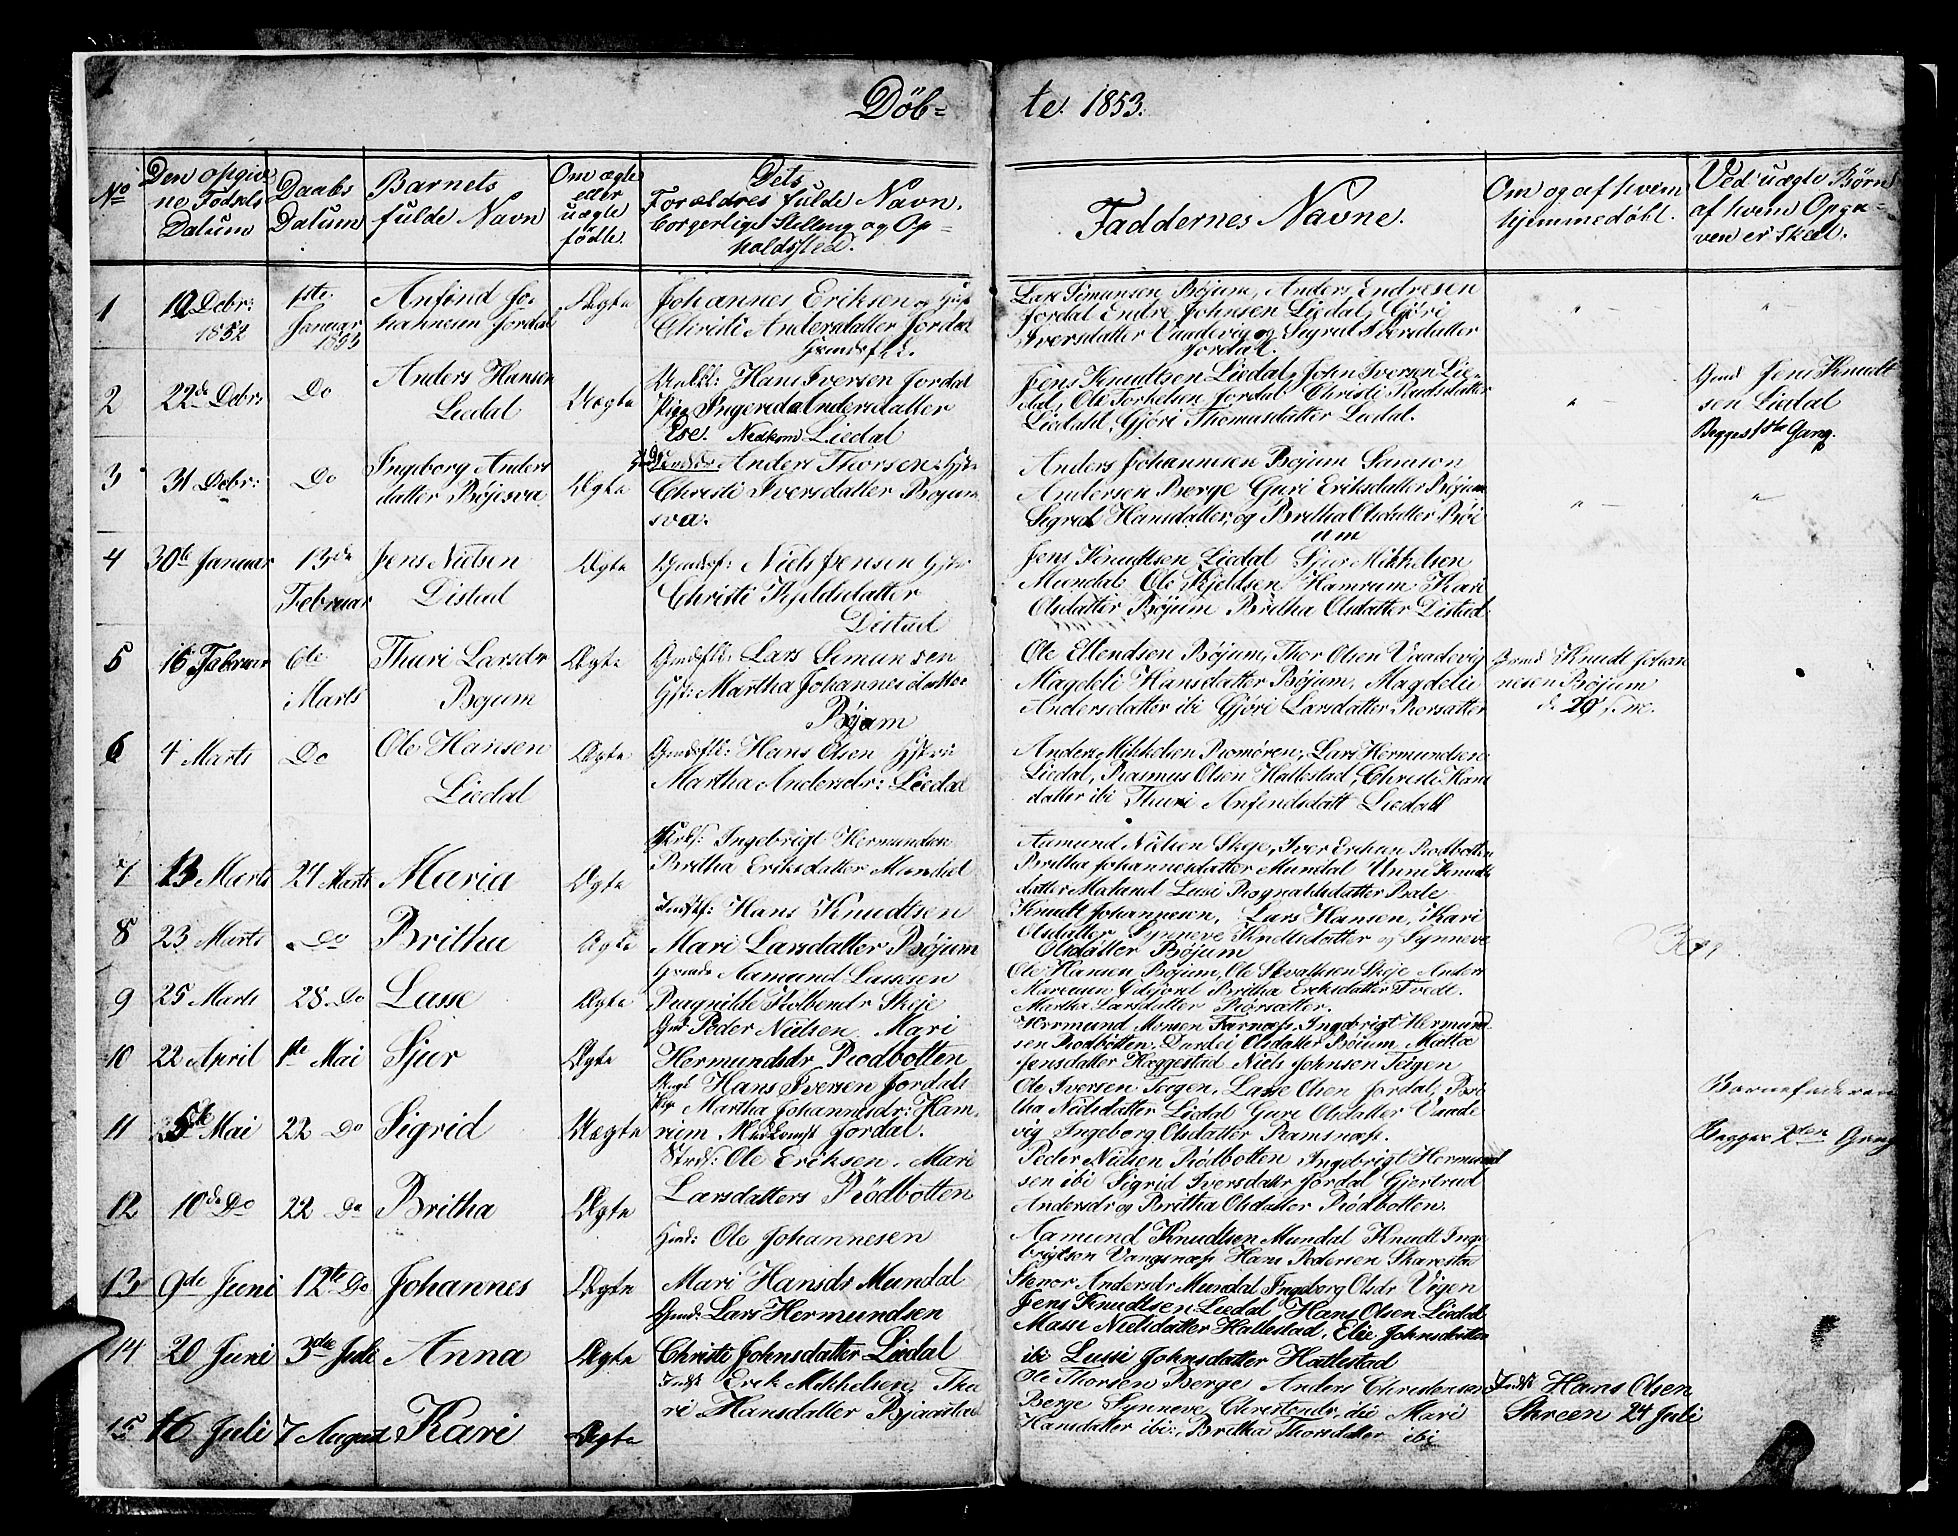 Döb= te 1853.
No
Den opgiv
ne Födsels
Datum
Daabs
Datum
Barnets
fulde Navn
Om ægte
eller
uægte
födte.
Dets
Forældres fulde Navn,
borgerlige Stilling og Op=
holdssted.
Faddernes Navne.
Om og af hvem
hjemmedøbt.
Ved uægte Børn
af hvem Opga=
ven er skeet.
1
19 Debr:
1852
1ste
Januar
1853
Anfind Jo
hannesen Jordal
Ægte
Johannes Eriksen og
Christi Andersdatter Jordal
Lars Simunsen Bøjum, Anders Endresen
Jordal Endre Johnsen Liedal, Gjöri
Iversdatter Vaadevig og Sigrid Iversdatter
Jordal.
2
22de Debr:
Do
Anders Hansen
Liedal
Uægte
Hans Iversen Jordal
Pige Andersdatter
Nedkom Liedal
Jens Knudtsen Liedal, John Iversen Lie=
dal, Ole Torkelsen Jordal Christi
Liedahl, Gjöri Thomasdatter Liedal.
Jens Knudt
sen Liedal
Begges 1ste Gang.
3
31 Debr:
Do
Ingeborg Anders
datter Böjisva
Ægte
Anders Thorsen
Christi Iversdatter Bøjum
sva.
Anders Johannesen Bøjum Samson
Andersen Berge Guri Eriksdatter Böjum
Sigrid Hansdatter og Britha Olsdatter Böi
um
4
30te Januar
13de
Februar
Jens Nielsen
Distad
Ægte
Niels Jensen
Christi Kjeldsdatter
Distad
Jens Knudtsen Liedal Sjur Mikkelsen
Mundal Ole Kjeldsen Hamrum Kari
Olsdatter Böjum Britha Olsdatter Distad
5
16 Februar
6te
Marts
Thuri Larsdr
Bøjum
Ægte
Lars Simunsen
Martha Johannesdatter
Böjum
Ole Ellendsen Böjum, Thor Olsen Vaadevig
Magdeli Hansdatter Böjum, Magdeli
Andersdatter ibi Gjöri Larsdatter
Knudt Johan
nesen Böjum
6
4 Marts
Do
Ole Hansen
Liedal
Ægte
Hans Olsen
Martha Andersdr: Liedal
Anders Mikkelsen Romören, Lars Hermundsen
Liedal, Rasmus Olsen Hallestad, Christi Hans
datter ibi Thuri Anfindsdatt Liedal
7
13 Marts
27 Marts
Maria
Ægte
Ingebrigt Hermundsen
Britha Eriksdatter Mundal
Aamund Nielsen Skeje, Iver Eriksen Rödbotten
Britha Johannesdatter Mundal Unni Knudts
datter Lussi Rognaldsdatter
8
23 Marts
Do
Britha
Ægte
Hans Knudtsen
Mari Larsdatter Böjum
Knudt Johannesen, Lars Hansen, Kari
Olsdatter Synneve Knudtsdatter og Synneve
Olsdatter Böjum
9
25 Marts
28 Do
Lasse
Ægte
Aamund Lassesen
Skeje
Ole Hansen Böjum, Ole Skeje Anders
Britha Eriksdatter Tvedt.
Martha Larsdatter
10
22 April
1ste Mai
Sjur
Ægte
Peder Nielsen Mari
Hermundsdr Rödbotten
Hermund Monsen Ingebrigt Hermund
sen Rödbotten, Durdei Olsdatter Böjum
Jensdatter Hæggestad Niels Johnsen Teigen
11
5te Mai
22 Do
Sigrid
Uægte
Hans Iversen Jordal
Pige Martha Johannesdr: Ham
rum Nedkomst Jordal.
Ole Iversen Teigen, Lasse Olsen Jordal, Bri
tha Nielsdatter Liedal Guri Olsdatter Vaade
vig Ingeborg Olsdatter Ramsnæs.
Barnefaderen
Begges 2den Gang
12
10de Do
22 Do
Britha
Ægte
Ole Eriksen, Mari
Larsdatter Rödbotten
Peder Nielsen Rödbotten Ingebrigt Hermund
sen ibi Sigrid Iversdatter Jordal Gjertrud
Andersdr og Britha Olsdatter Rödbotten.
13
9de Juni
12te Do
Johannes
Ægte
Ole Johannesen
Mari Hansdr Mundal
Aamund Knudtsen Mundal Knudt Inge
brigtsen Vangsnæs Hans Pedersen
Andersdr Mundal Ingeborg Olsdr Vigen
14
20 Juni
3die Juli
Anna
Ægte
Lars Hermundsen
Christi Johnsdatter Liedal
Jens Knudtsen Liedal Hans Olsen Liedal
Massi Nielsdatter Hallestad, Elie Johnsdatter
ibi Lussi Johnsdatter Hatlestad
15
16 Juli
7 August
Kari
Ægte
Erik Mikkelsen, Thu
ri Hansdatter
Ole Thorsen Berge Anders Christensen
Berge Synneve Christensdr ibi Mari
Hansdatter ibi, Britha Thorsdatter ibi
Hans Olsen
Skreen 24 Juli